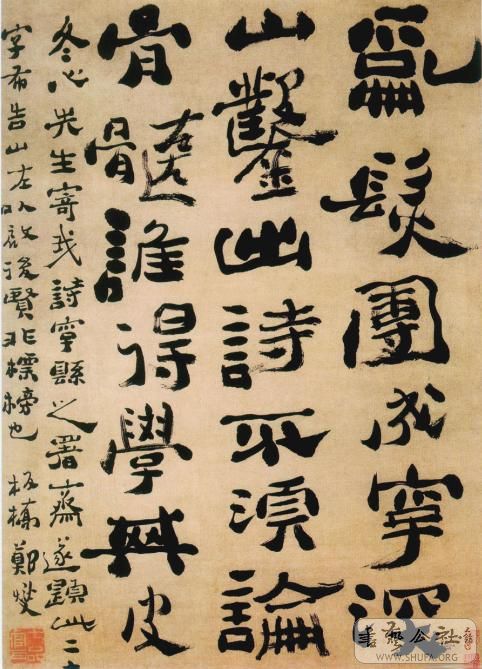 亂髮團成字深
山鑿出詩不須論
骨髓誰得學其皮
冬心先生寄我詩字縣之署齋遂題此二十
字布告山左以啟後賢非標榜也 板橋鄭燮
書藝公社
WWW.SHUFA.ORG